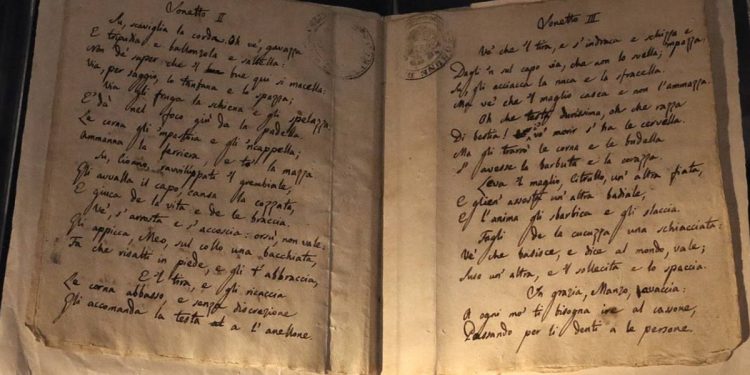 Sonetto II
Su, scaviglia la corda. Oh ve', gavazza
E tripudia e ballonzola e saltella:
Non de' saper che il bue qui si macella:
Via, per saggio, lo tanfana e lo spazza;
Via gli fruga la schiena e gli spelazza,
E dà nel foco giù da la padella.
Le corna gli impastoia e gli incappella;
Ammanna la ferriera, e to' la mazza
Su, Cionno, ravviluppati il grembiale,
Gli avvalla il capo, cansa la cozzata,
E giuoca de la vita e de le braccia.
Ve', s'arrosta e s'accoscia: orsù, non vale:
Gli appicca, Meo, sul collo una bacchiata,
Fa che risalti in piede, e gli t'abbraccia,
E il tira, e gli ricaccia
Le corna abbasso, e senza discrezione
Gli accomanda la testa a l'anellone.
Sonetto III
Ve' che il tira, e s'indraca e schizza e
Dagli 'n sul capo via, che non lo svella; impazza:
Su gli acciacca la nuca e lo sfracella.
Ma ve' che il maglio casca e non l'ammazza.
Oh che testa durissima, oh che razza
Di bestia! vo' morir s'ha le cervella.
Ma gli trarrò le corna e le budella
S'avesse la barbuta e la corazza.
Leva il maglio, Citrullo, un'altra fiata,
E glien' assesta un'altra badiale;
E l'anima gli sbarbica e gli slaccia.
Fagli de la cucuzza una schiacciata:
Ve' che basisce, e dice al mondo, vale;
Suso un'altra, e il sollecita e lo spaccia.
In grazia, Manzo, avaccia:
A ogni mo' ti bisogna ire al cassone,
Passando per li denti a le persone.